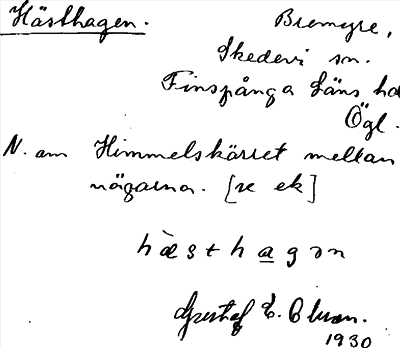 Hästhagen.
Bremyre,
Skedevi sn.
Finspånga Läns hd.
Ögl.
N. om Himmelskärret mellan
vägarna. [se ek]
hæ̀sthagən
Gustaf E. Olsson.
1930